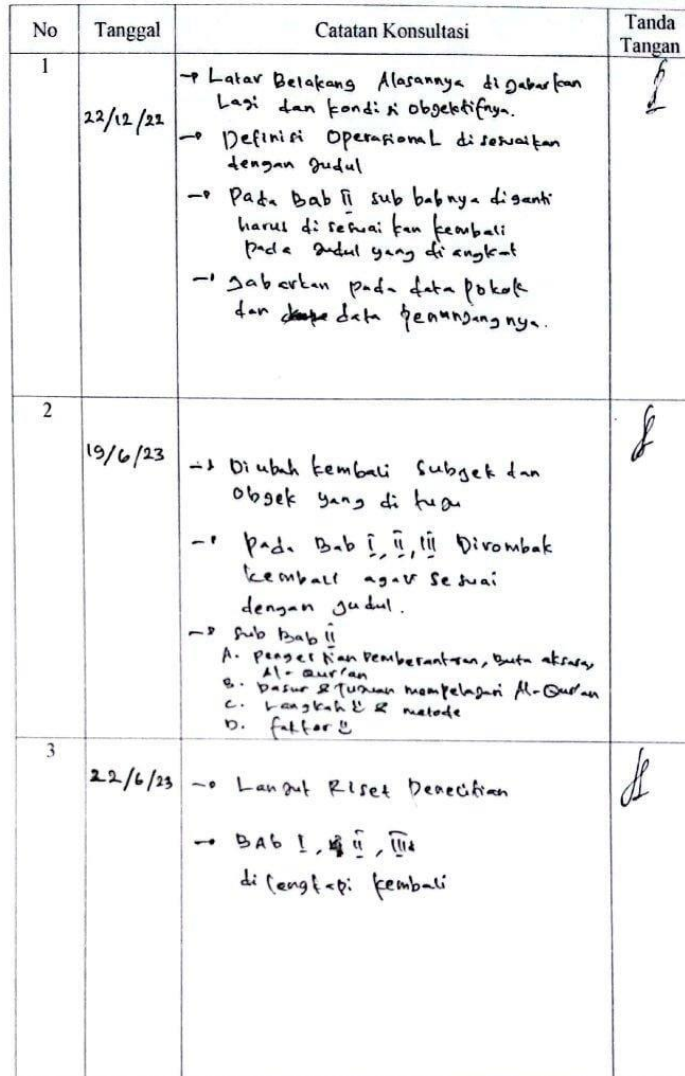 No Tanggal Catatan Konsultasi Tanda
Tangan
1
22/12/22
→ Latar Belakang Alasannya di jabarkan
Lagi dan kondisi objektifnya.
→ Definisi Operasional disesuaikan
dengan judul
→ Pada Bab II sub babnya diganti
harus disesuaikan kembali
pada judul yang diangkat
→ Jabarkan pada data pokok
dan data penunjangnya.
2
19/6/23
→ Diubah kembali Subjek dan
Objek yang di tuju
→ Pada Bab I, II, III Dirombak
kembali agar sesuai
dengan judul.
→ Sub Bab II
A. Pengertian Pemberantasan, Buta aksara,
Al-Qur'an
B. Dasar & Tujuan mempelajari Al-Qur'an
C. Langkah2 & metode
D. faktor2
3
22/6/23
→ Lanjut Riset Penelitian
→ BAB I, II, III
dilengkapi kembali